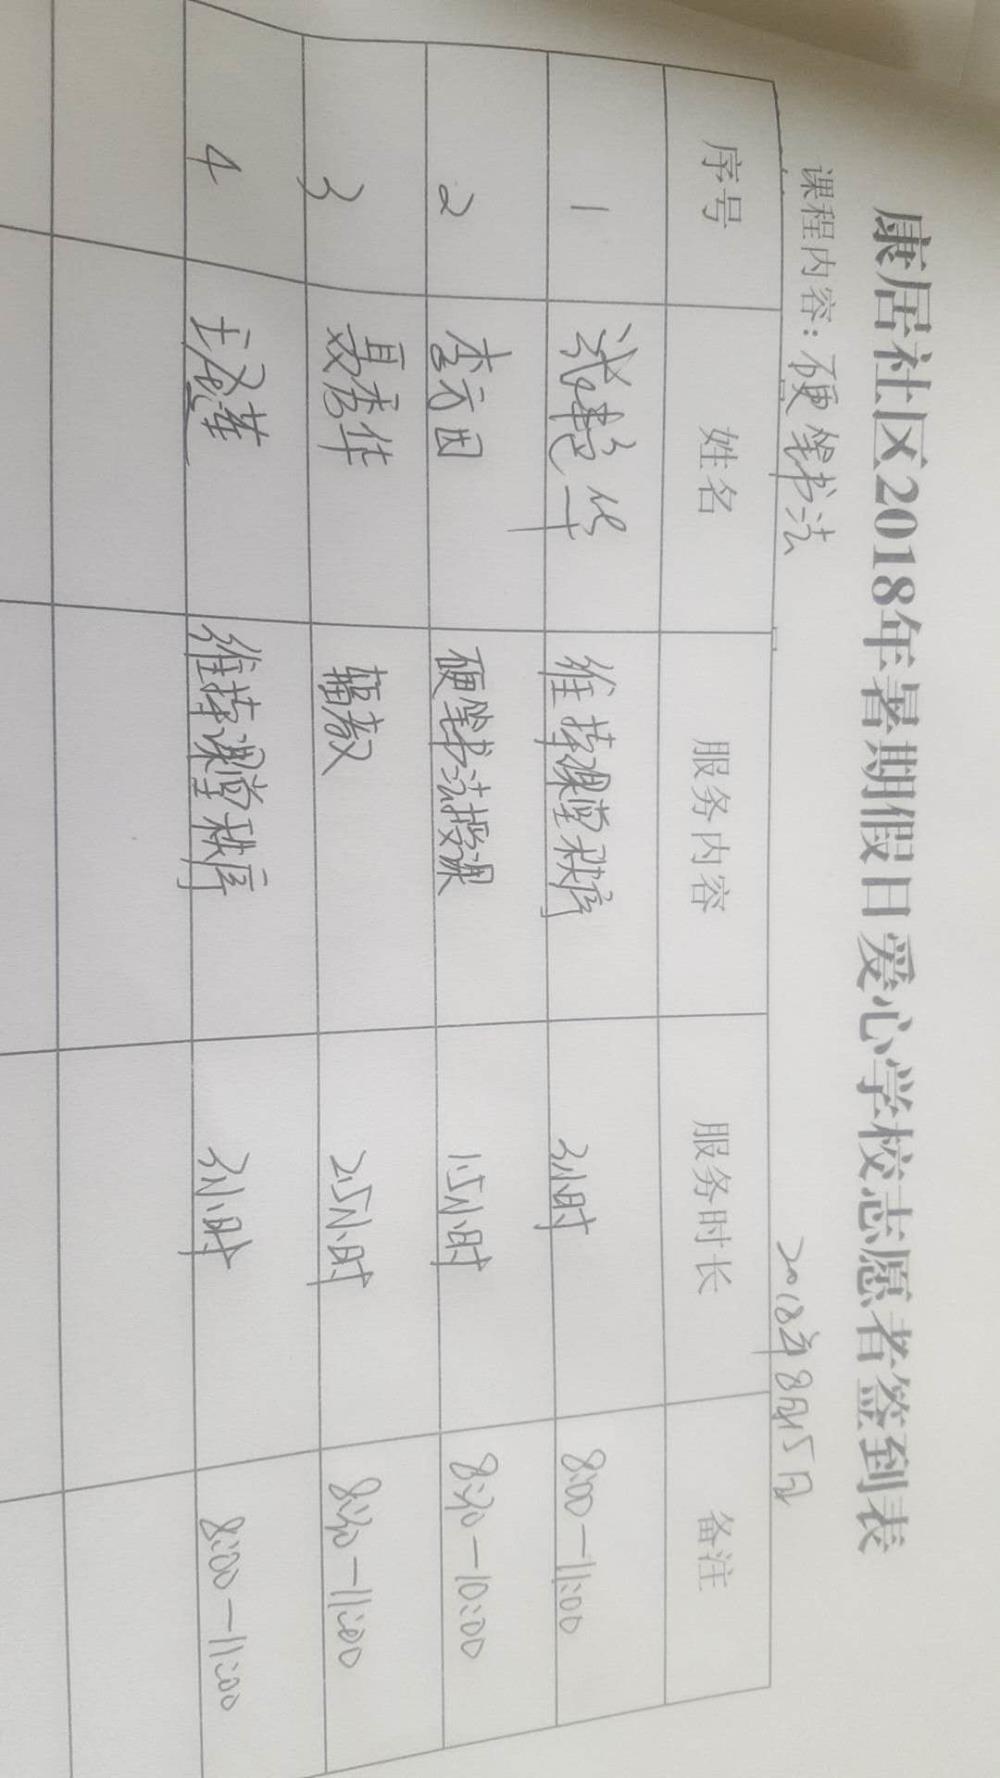 康居社区2018年暑期假日爱心学校志愿者签到表
课程内容：硬笔书法 2018年8月15日
序号 姓名 服务内容 服务时长 备注
1 张建华 维持课堂秩序 3小时 8:00—11:00
2 李方园 硬笔书法授课 1.5小时 8:30—10:00
3 聂秀华 辅教 2.5小时 8:30—11:00
4 莲 维持课堂秩序 3小时 8:00—11:00